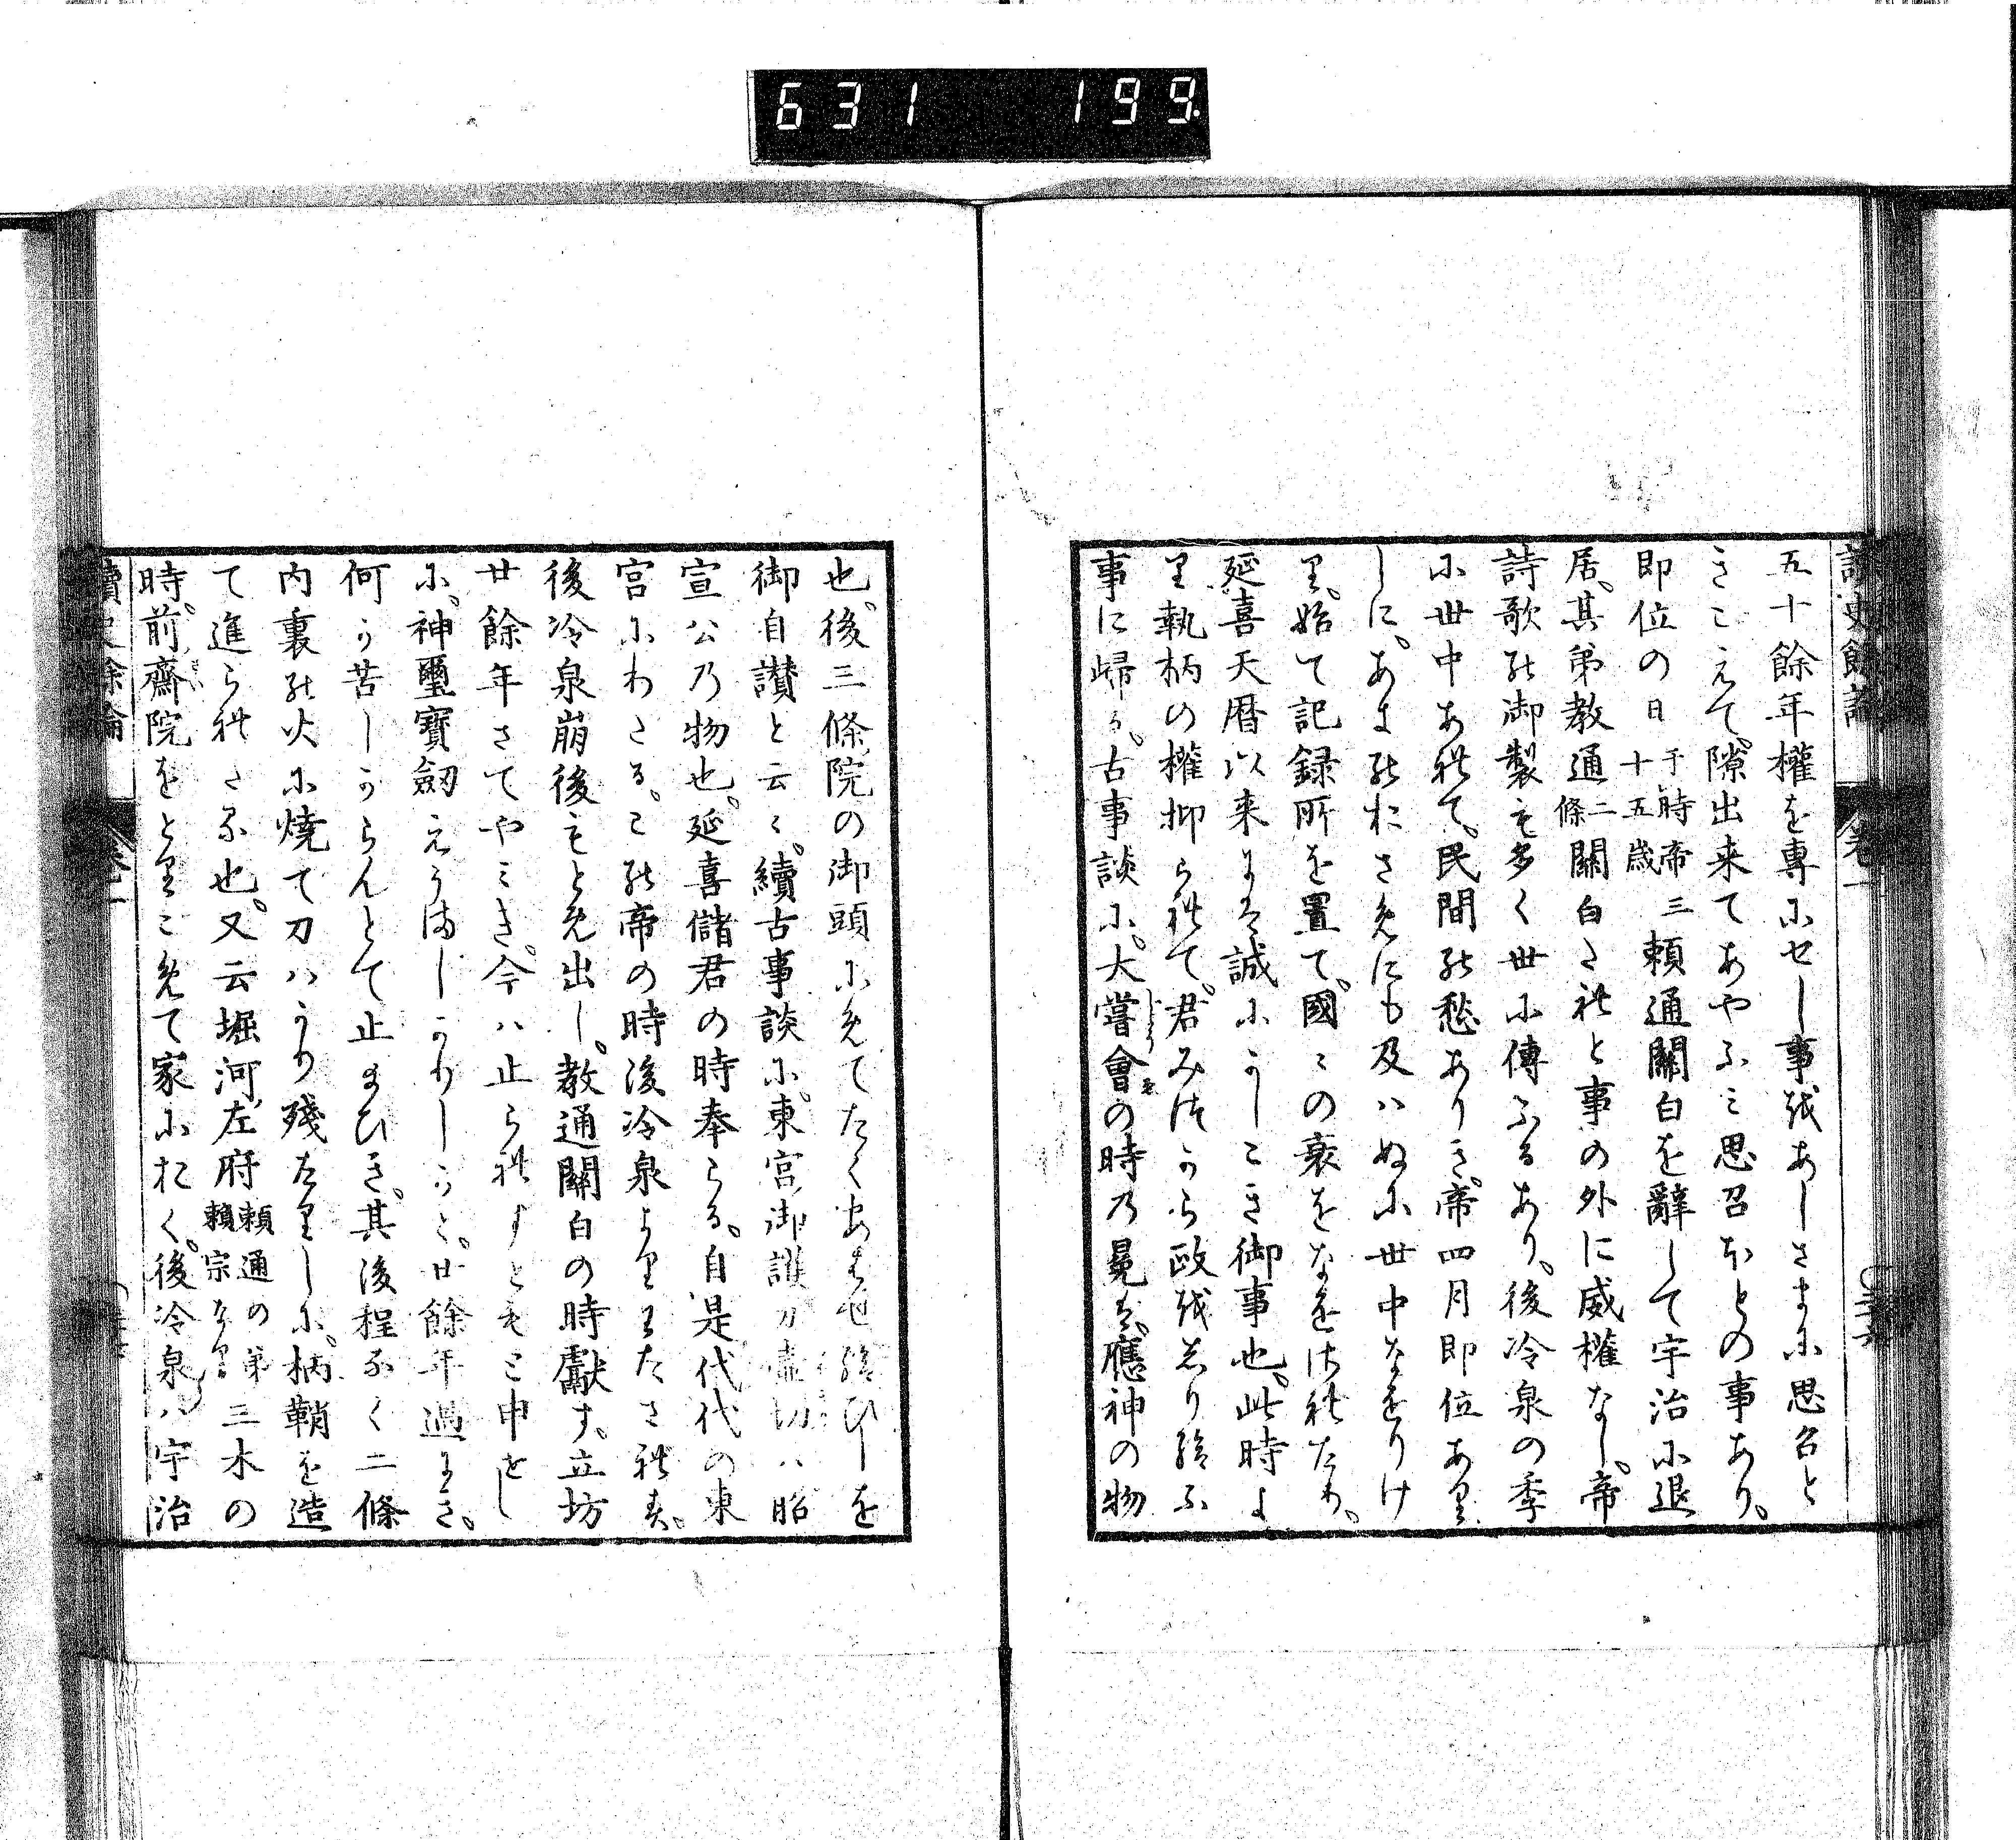 631 199.
讀史餘論 卷一
五十餘年權を專にせし事をあしさまに思召と
きこえて。隙出来てあやふミ思召ほとの事あり。
即位の日于時帝三十五歳頼通關白を辭して宇治に退
居。其弟教通二條關白たれと事の外に威權なし。帝
詩歌の御製も多く世に傳ふるあり。後冷泉の季
に世中あれて。民間の愁ありき。帝四月即位あり
しに。あまのおさめにも及ハぬに世中なをりけ
り。始て記録所を置て。國〻の衰をなをされたり。
延喜天暦以来まては誠にかしこき御事也。此時よ
り執柄の權抑られて。君みつから政をしり給ふ
事に歸る。古事談に。大嘗會の時乃冕は。應神の物
也。後三條院の御頭にめてたくあはせ給ひしを
御自讃と云〻。續古事談に。東宮御護刀壷切ハ昭
宣公乃物也。延喜儲君の時奉らる。自是代代の東
宮にわたる。この帝の時後冷泉よりわたされす。
後冷泉崩後もとめ出し。教通關白の時獻す。立坊
廿餘年さてやミき。今ハ止られよともミ申せし
に。神璽寶劔えうましかりしかと。廿餘年過にき。
何か苦しからんとて止まひき。其後程なく二條
内裏の火に燒て刀ハかり殘たりしに。柄鞘を造
て進られたる也。又云堀河左府頼通の弟頼宗なり三木の
時。前齋院をとりこめて家におく。後冷泉ハ宇治
讀史餘論 卷一